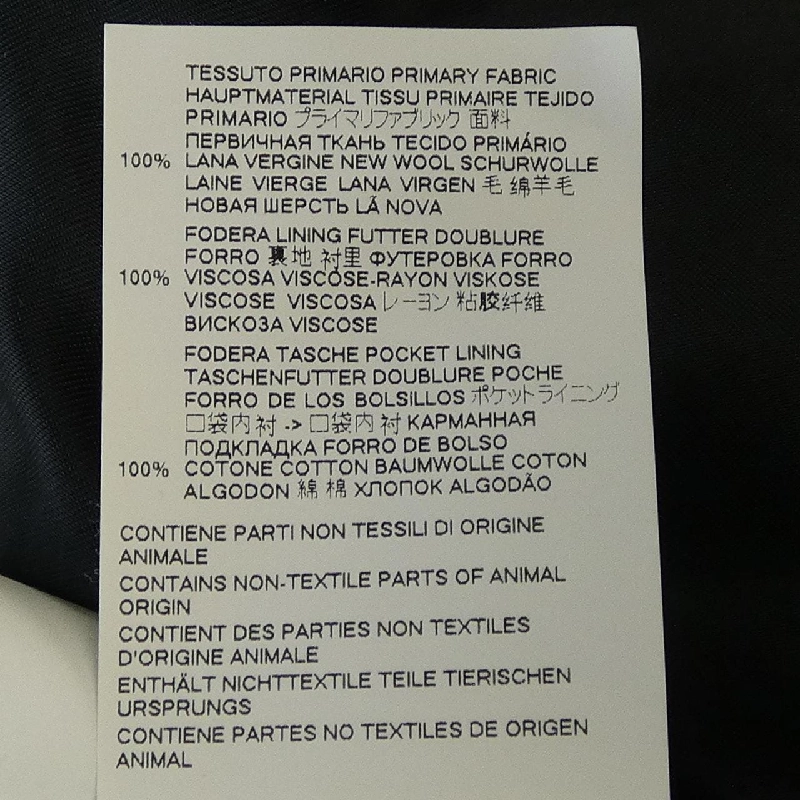 TESSUTO PRIMARIO PRIMARY FABRIC
HAUPTMATERIAL TISSU PRIMAIRE TEJIDO
PRIMARIO プライマリファブリック 面料
ПЕРВИЧНАЯ ТКАНЬ TECIDO PRIMÁRIO
100% LANA VERGINE NEW WOOL SCHURWOLLE
LAINE VIERGE LANA VIRGEN 毛 绵羊毛
НОВАЯ ШЕРСТЬ LÃ NOVA
FODERA LINING FUTTER DOUBLURE
FORRO 裏地 衬里 ФУТЕРОВКА FORRO
100% VISCOSA VISCOSE-RAYON VISKOSE
VISCOSE VISCOSA レーヨン 粘胶纤维
ВИСКОЗА VISCOSE
FODERA TASCHE POCKET LINING
TASCHENFUTTER DOUBLURE POCHE
FORRO DE LOS BOLSILLOS ポケットライニング
口袋内衬 -> 口袋内衬 КАРМАННАЯ
ПОДКЛАДКА FORRO DE BOLSO
100% COTONE COTTON BAUMWOLLE COTON
ALGODON 綿 棉 ХЛОПОК ALGODÃO
CONTIENE PARTI NON TESSILI DI ORIGINE
ANIMALE
CONTAINS NON-TEXTILE PARTS OF ANIMAL
ORIGIN
CONTIENT DES PARTIES NON TEXTILES
D'ORIGINE ANIMALE
ENTHÄLT NICHTTEXTILE TEILE TIERISCHEN
URSPRUNGS
CONTIENE PARTES NO TEXTILES DE ORIGEN
ANIMAL